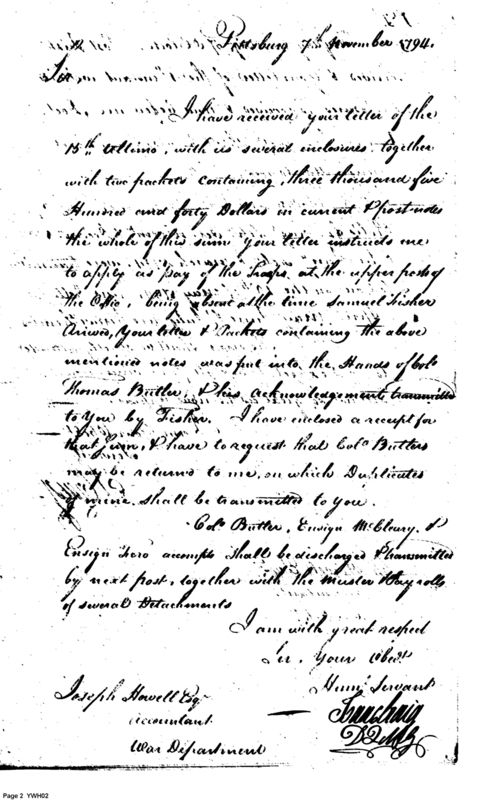 Pittsburg 7th November 1794.
Sir,
I have received your letter of the
15th Ultimo, with its several enclosures together
with two packets containing, three thousand five
Hundred and forty Dollars in current & post notes
the whole of this sum your letter instructs me
to apply as pay of the Troops at the upper posts of
the Ohio, being absent at the time Samuel Fisher
Arived, Your letter & Packets containing the above
mentioned notes was put into the Hands of Colo.
Thomas Butler, & his acknowledgements transmitted
to You by Fisher. I have enclosed a receipt for
that Sum, & have to request that Colo. Butlers
may be returned to me, on which Duplicates
of mine shall be transmitted to you.
Colo. Butler, Ensign McCleary, &
Ensign accompts shall be discharged & transmitted
by next post, together with the Muster & Pay rolls
of several Detachments
I am with great respect
Sir, Your Obedt.
Humb. Servant
Isaac Craig
D Q M G
Joseph Howell Esqr.
Accountant
War Department
Page 2 YWH02